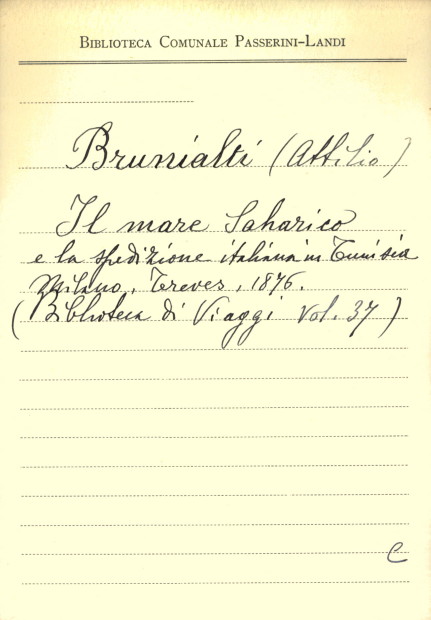 BIBLIOTECA COMUNALE PASSERINI-LANDI
Brunialti (Attilio)
Il mare Saharico
e la spedizione italiana in Tunisia
Milano, Treves, 1876.
(Biblioteca di Viaggi Vol. 37)
C